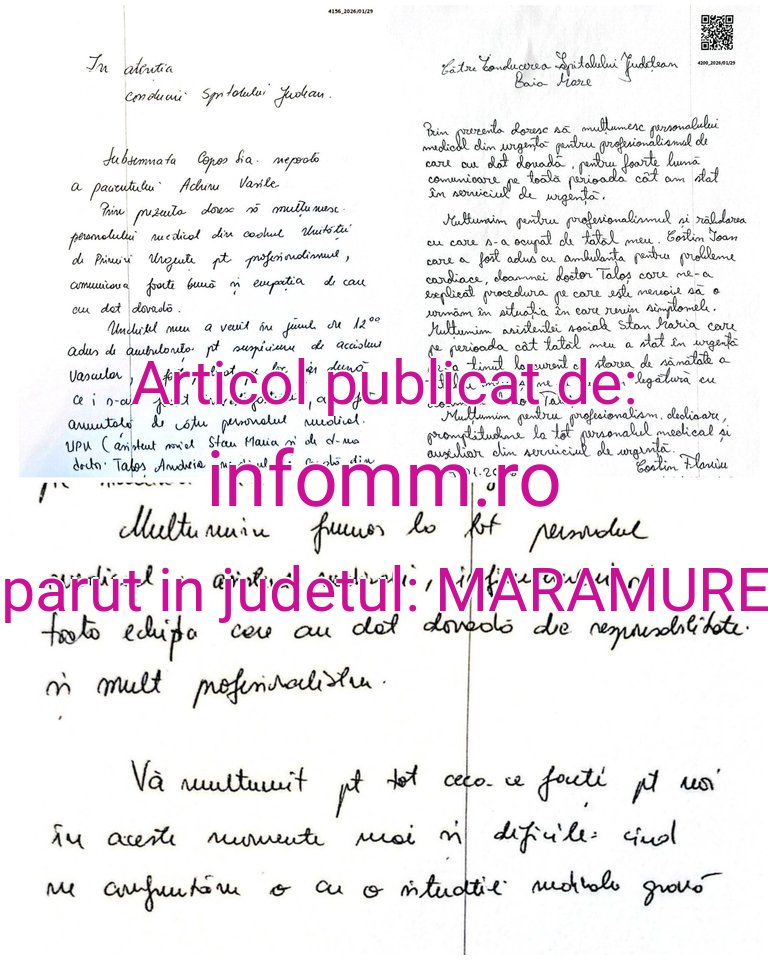 4156_2026/01/29
În atenția
conducerii Spitalului Județean.
Subsemnata Copos Lia. nepoata
a pacientului Achim Vasile
Prin prezenta doresc să mulțumesc
personalului medical din cadrul Unității
de Primiri Urgențe pt profesionalismul,
comunicarea foarte bună și empatia de care
au dat dovadă.
Unchiul meu a venit în jurul ore 12⁰⁰
adus de ambulanța pt suspiciune de accident
Vascular,
ce i s-au investigațiile, a
anunțată de către personalul medical.
UPU (asistent social Stan Maria și de d-na
doctor Talos Andreia
4200_2026/01/29
Către Conducerea Spitalului Județean
Baia Mare
Prin prezenta doresc să multumesc personalului
medical din urgența pentru profesionalismul de
care au dat dovadă, pentru foarte bună
comunicare pe toată perioada cât am stat
în serviciul de urgență.
Multumim pentru profesionalismul si răbdarea
cu care s-a ocupat de tatăl meu. Costin Ioan
care a fost adus cu ambulanța pentru probleme
cardiace, doamnei doctor Taloș care ne-a
explicat procedura pe care este nevoie să o
urmăm în situația în care revin simptomele.
Multumim asistentei sociale Stan Maria care
pe perioada cât tatăl meu a stat în urgență
ne-a ținut la curent cu starea de sănătate a
legătură cu
Multumim pentru profesionalism, dedicare,
promptitudine la tot personalul medical și
auxiliar din serviciul de urgență.
Costin Flaviu
Articol publicat de:
infomm.ro
parut in judetul: MARAMURE
Multumim frumos la tot personalul
medical, asistente medicali,
toata echipa care au dat dovadă de responsabilitate.
si mult profesionalism.
Vă multumit pt tot ceea-ce faceti pt noi
în aceste momente mai si dificile cind
ne confruntăm o cu o situatie medicala gravă